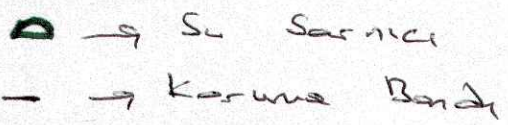 → Su Sarnıcı
→ Koruma Bandı